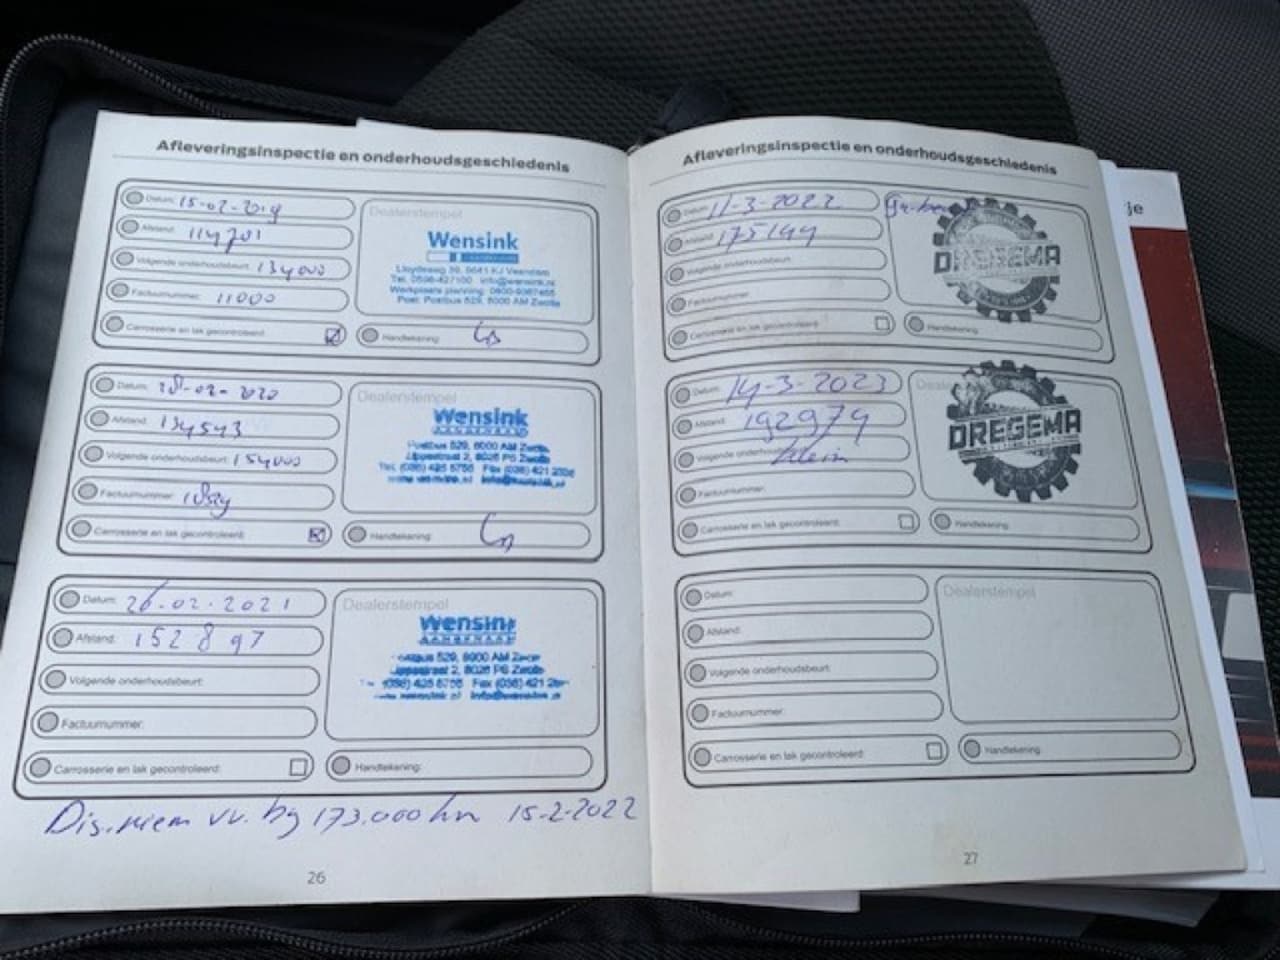 Afleveringsinspectie en onderhoudsgeschiedenis
Datum: 15-02-2019
Afstand: 114701
Volgende onderhoudsbeurt: 134000
Factuurnummer: 11000
Carrosserie en lak gecontroleerd:
Dealerstempel
Wensink
Lloydsweg 39, 9641 KJ Veendam
Tel. 0598-427100 info@wensink.nl
Werkplaats planning: 0800-9367465
Post: Postbus 529, 8000 AM Zwolle
Handtekening:
Datum: 28-02-2020
Afstand: 134543
Volgende onderhoudsbeurt: 154000
Factuurnummer:
Carrosserie en lak gecontroleerd:
Dealerstempel
Wensink
AANGENAAM
Postbus 529, 8000 AM Zwolle
Lippestraat 2, 8028 PS Zwolle
Tel. (038) 425 5755 Fax (038) 421
Handtekening:
Datum: 26-02-2021
Afstand: 152897
Volgende onderhoudsbeurt:
Factuurnummer:
Carrosserie en lak gecontroleerd:
Dealerstempel
Wensink
AANGENAAM
Postbus 529, 8000 AM Zwolle
Handtekening:
Dis.riem vv. bij 173.000 km 15-2-2022
26
Afleveringsinspectie en onderhoudsgeschiedenis
Datum: 11-3-2022
Afstand: 175144
Volgende onderhoudsbeurt:
Factuurnummer:
Carrosserie en lak gecontroleerd:
DREGEMA
Handtekening:
Datum: 14-3-2023
Afstand: 192979
Volgende onderhoudsbeurt: klein
Factuurnummer:
Carrosserie en lak gecontroleerd:
DREGEMA
Handtekening:
Datum:
Afstand:
Volgende onderhoudsbeurt:
Factuurnummer:
Carrosserie en lak gecontroleerd:
Dealerstempel
Handtekening:
27
je